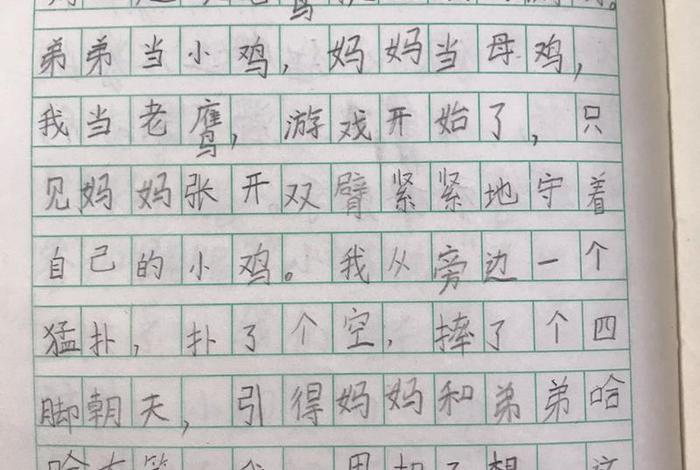 弟弟当小鸡，妈妈当母鸡，
我当老鹰，游戏开始了，只
见妈妈张开双臂紧紧地守着
自己的小鸡。我从旁边一个
猛扑，扑了个空，摔了个四
脚朝天，引得妈妈和弟弟哈